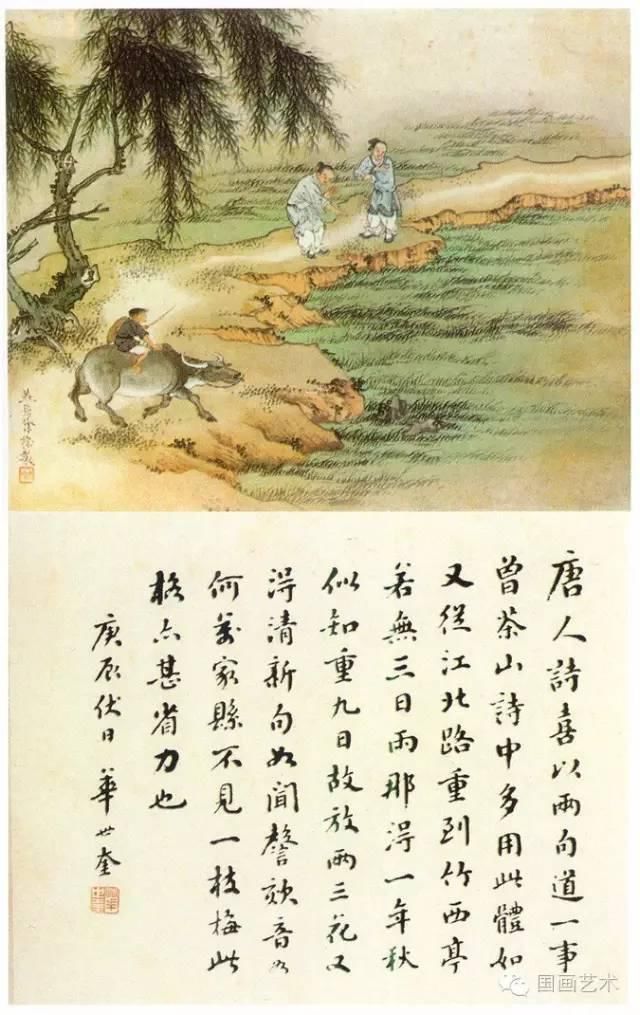 徐操
唐人詩喜以兩句道一事
曾茶山詩中多用此體如
又從江北路重到竹西亭
若無三日雨那得一年秋
似知重九日故放兩三花又
得清新句如聞謦欬音如
何萬家縣不見一枝梅此
格亦甚省力也
庚辰伏日 華世奎
国画艺术